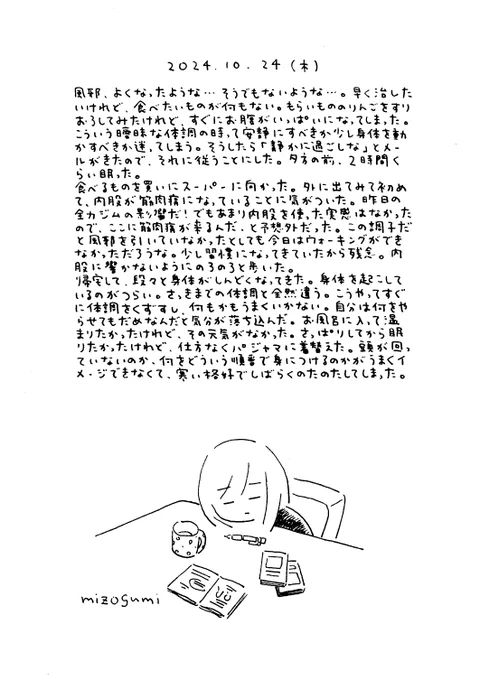 2024.10.24(木)
風邪、よくなったような…そうでもないような…。早く治した
いけれど、食べたいものが何もない。もらいもののりんごをすり
おろしてみたけれど、すぐにお腹がいっぱいになってしまった。
こういう曖昧な体調の時って安静にすべきか少し身体を動
かすべきか迷ってしまう。そうしたら「静かに過ごしな」とメー
ルがきたので、それに従うことにした。夕ネの前、2時間く
らい眠った。
食べるものを買いにスーパーに向かった。外に出てみて初め
て、内股が筋肉痛になっていることに気がついた。昨日の
全力ジムの影響だ！でもあまり内股を使った実感はなかった
ので、ここに筋肉痛が来るんだ、と予想外だった。この調子だ
と風邪を引いていなかったとしても今日はウォーキングができ
なかっただろうな。少し習慣になってきていたから残念。内
股に響かないようにのろのろと歩いた。
帰宅して、段々と身体がしんどくなってきた。身体を起こして
いるのがつらい。さっきまでの体調と全然違う。こうやってすぐ
に体調をくずすし、何もかもうまくいかない。自分は何をや
らせてもだめなんだと気分が落ち込んだ。お風呂に入って温
まりたかったけれど、その元気がなかった。さっぱりしてから眠
りたかったけれど、仕方なくパジャマに着替えた。頭が回っ
ていないのか、何をどういう順番で身につけるのかがうまくイ
メージできなくて、寒い格好でしばらくのたのたしてしまった。
mizogumi